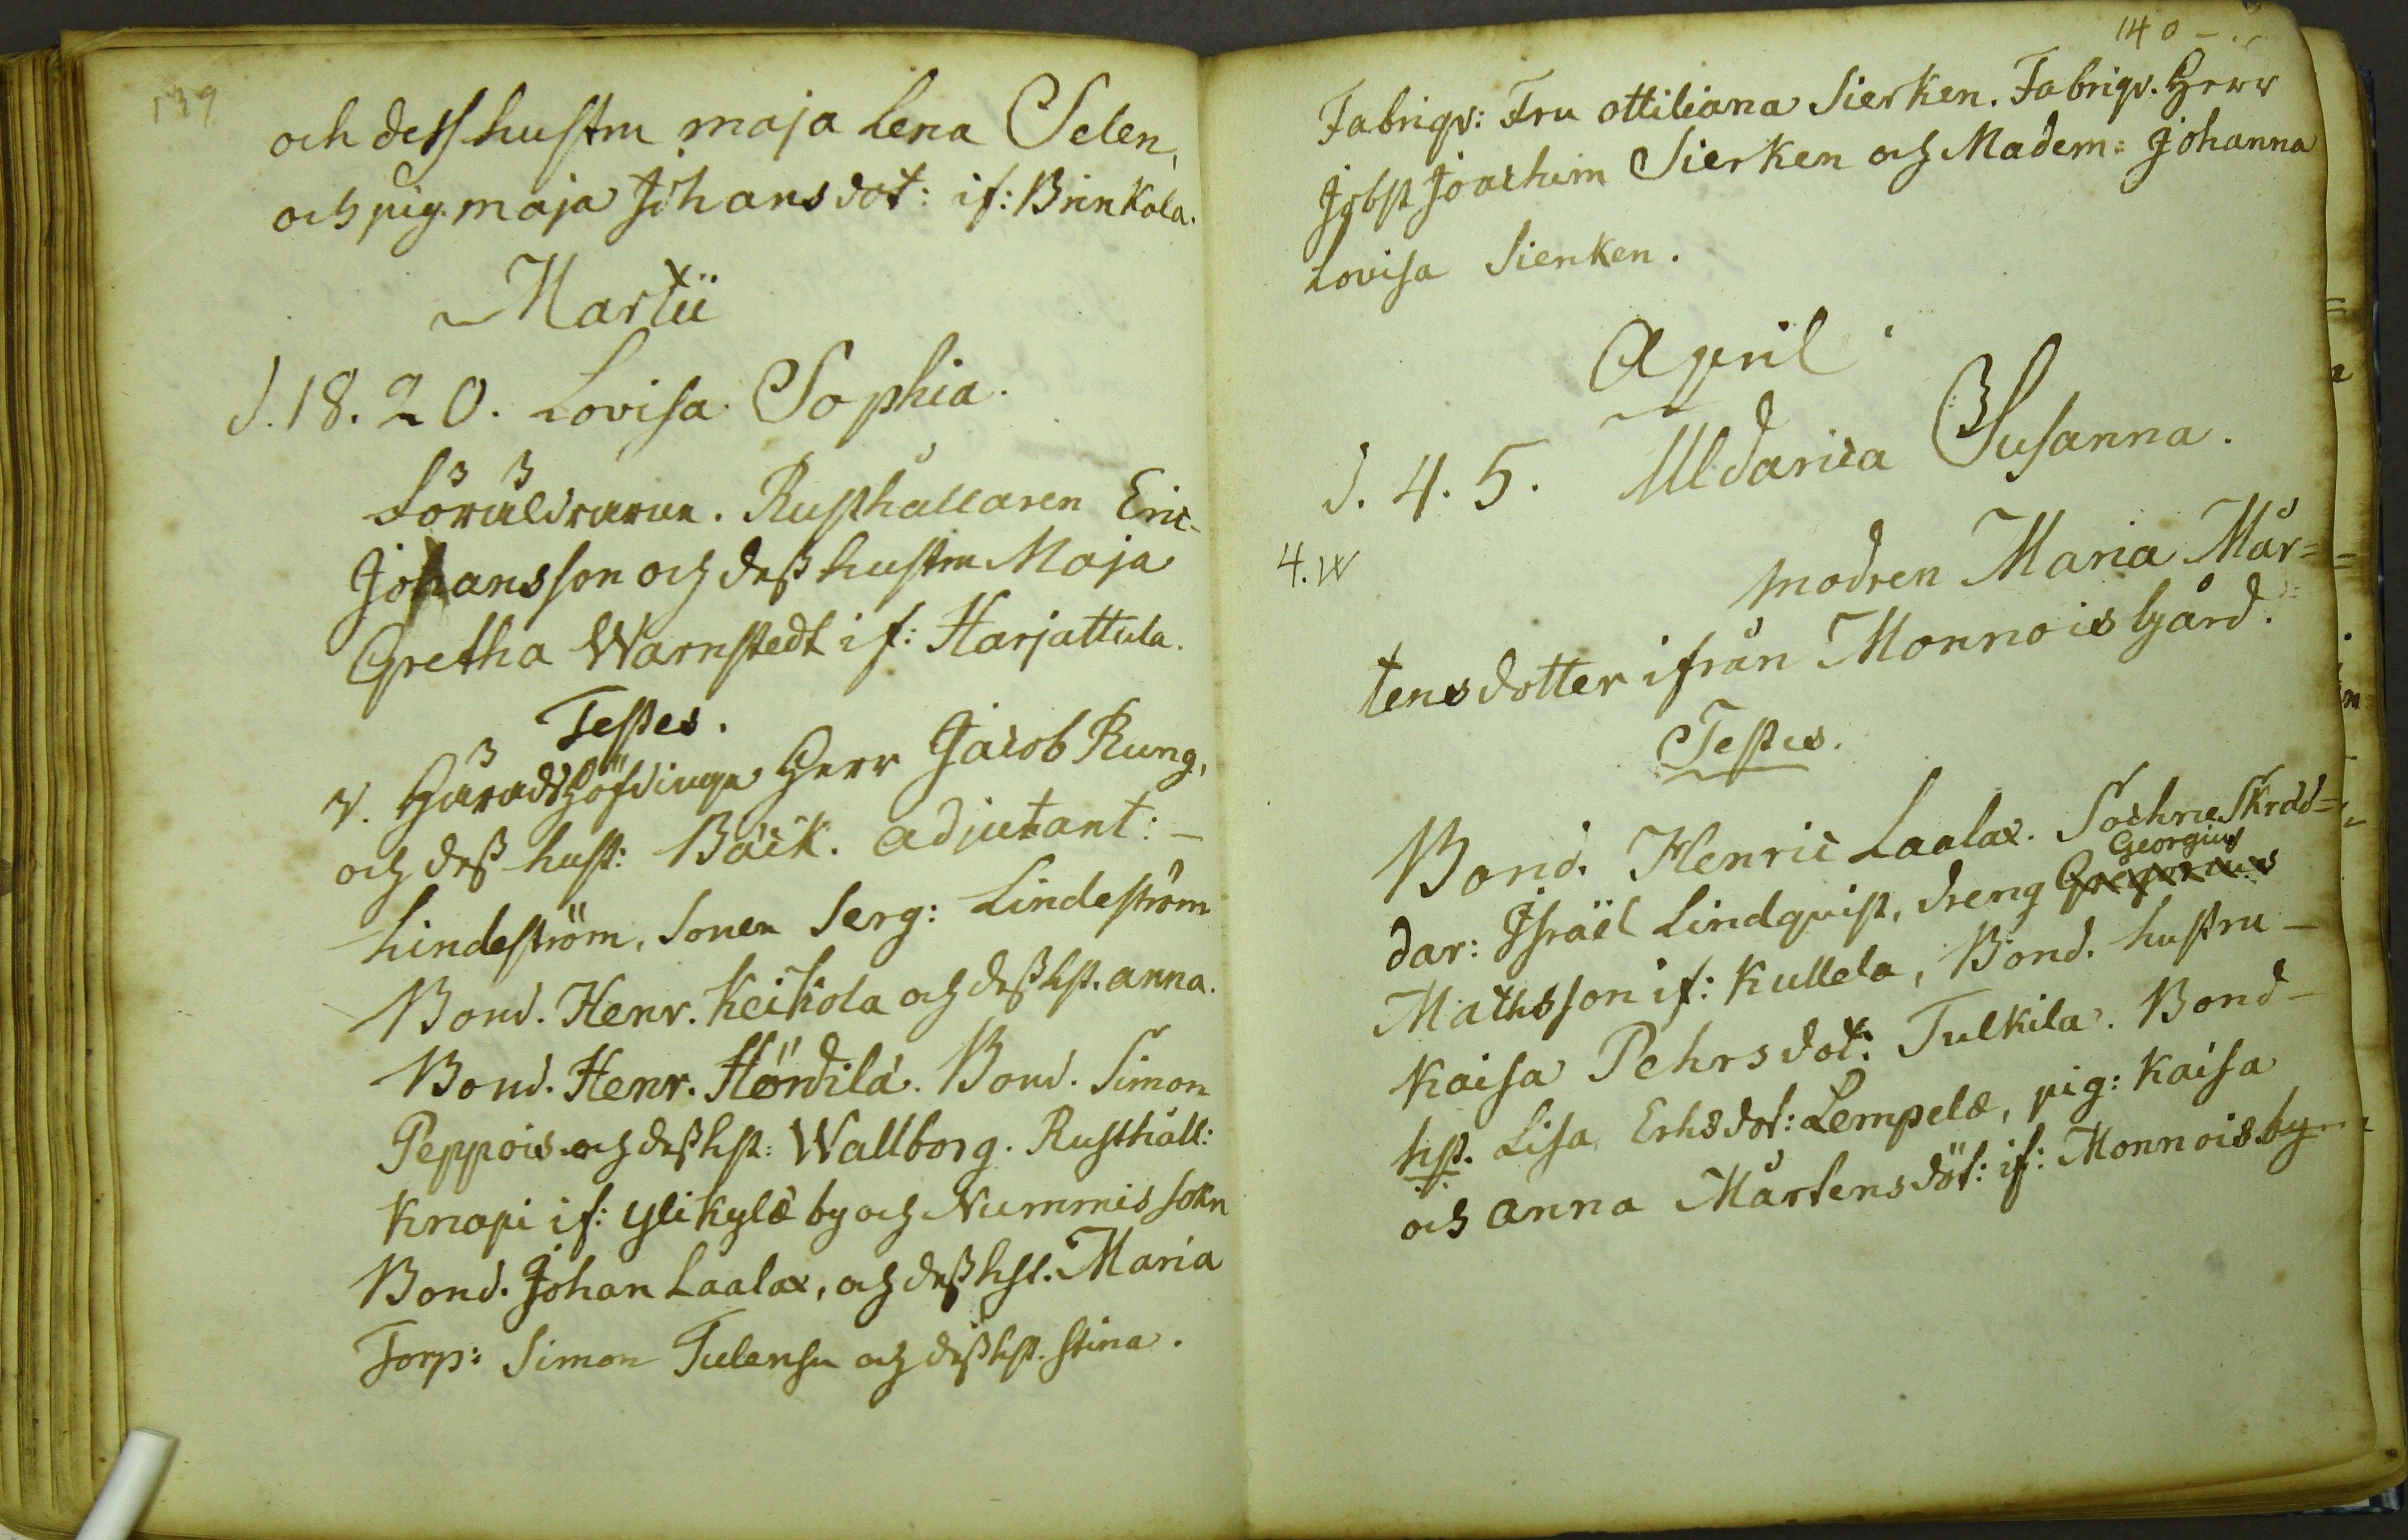 139
och dess hustru maja Lena Selen,
och pig. maja Johansdot: if: Brinkala.
Martii
d. 18. 20. Lovisa Sophia.
Föräldrarne. Rusthållaren Eric
Johansson och dess hustru Maja
Gretha Warnstedt if: Harjattula.
Testes.
v. Häradshöfdinge Herr Jacob Rung,
och dess hust: Bäck. adjutant: -
Lindeström, Sonen Serg: Lindeström
Bond. Henr. Keikola och dess hst. anna.
Bond. Henr. Hördilä. Bond. Simon
Peppois och dess hst: Wallborg. Rusthåll:
Knapi if: ylikylä by och Nummis sokn
Bond. Johan Laalax, och dess hst. Maria
Torp: Simon Tulensu och dess hst. Stina.
140
Fabriqv: Fru ottiliana Sierken. Fabriqv. Herr
Jobst Joachim Sierken och Madem: Johanna
Lovisa Sierken.
April
d. 4. 5. Uldarica Susanna.
4. W
modren Maria Mår=
tensdotter ifrån Monnois Gård.
Testes.
Bond. Henric Laalax. Sochne Skräd=
Georgius
dar: Israël Lindqvist, dreng Gregorius
Mathsson if: Kullela, Bond. hustru -
Kaisa Pehrsdot: Tulkila. Bond -
hst. Lisa Erhsdot: Lempelä, pig: Kaisa
och anna Mårtensdot: if: Monnois by